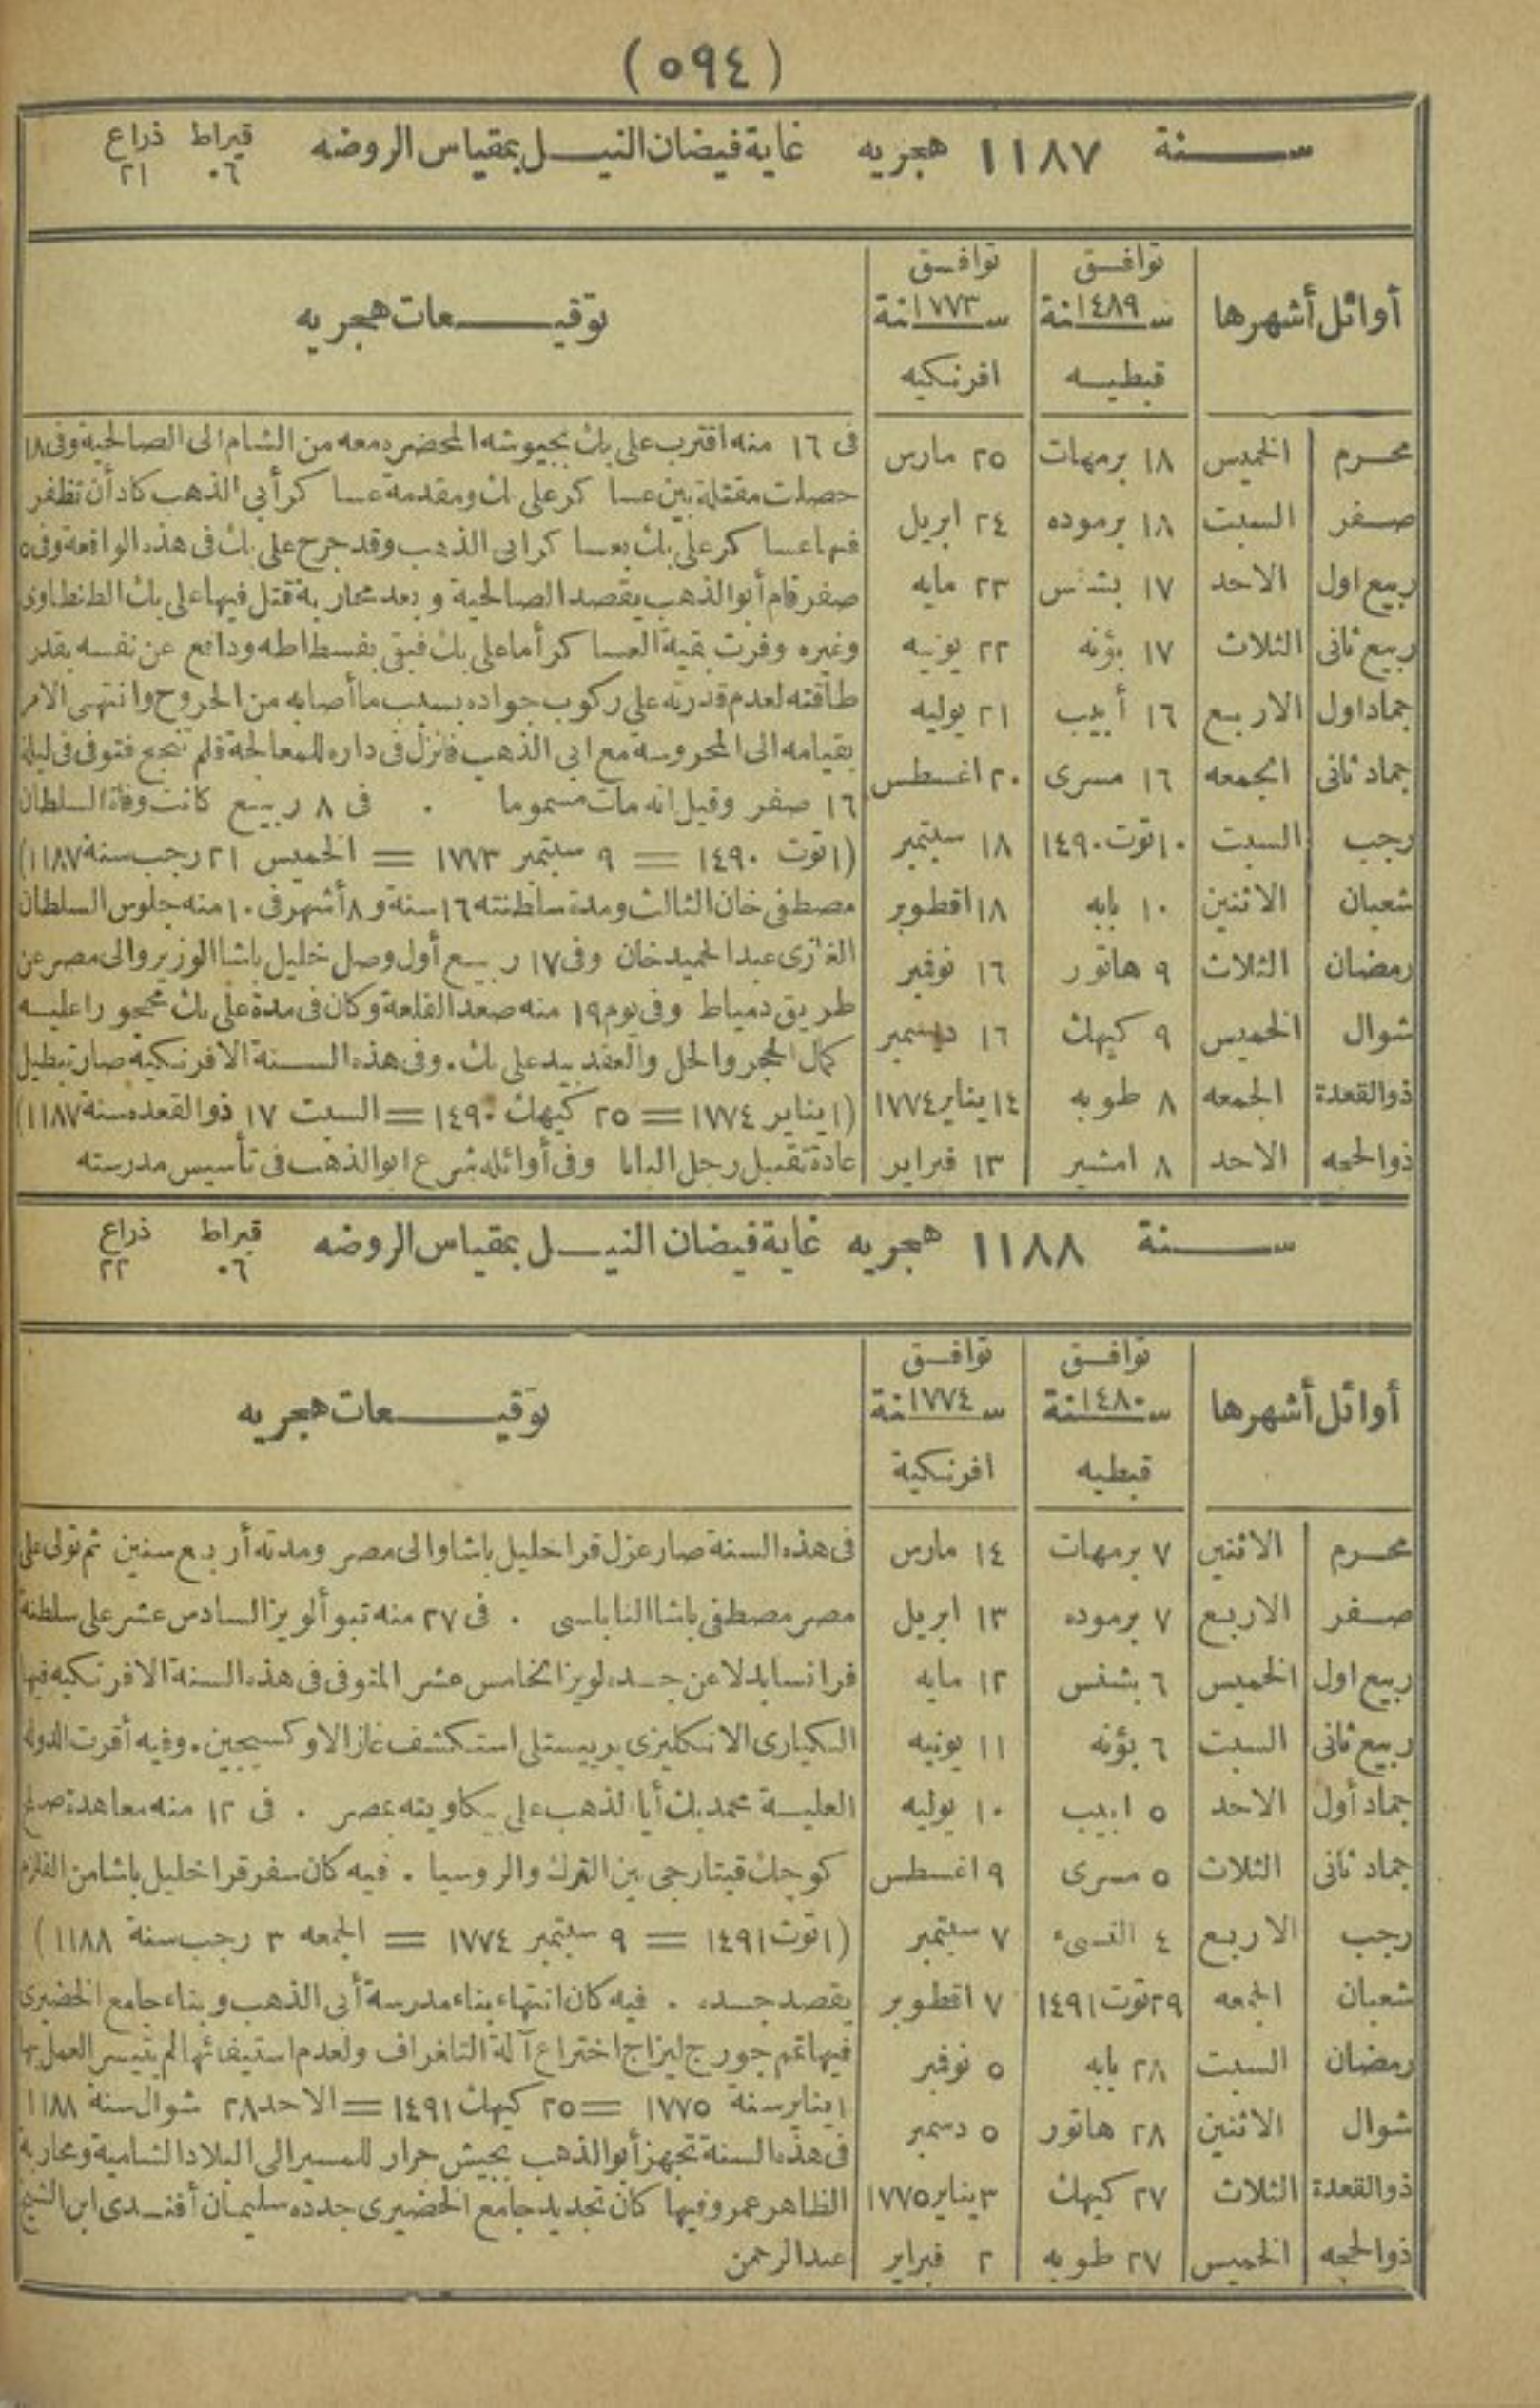 (٥٩٤)
سنة ١١٨٧ هجريه غاية فيضان النيل بمقياس الروضه قيراط ذراع
٠٦ ٢١
أوائل أشهرها توافق سنة ١٤٨٩ قبطيه توافق سنة ١٧٧٣ افرنكيه توقيعات هجريه
محرم الخميس ١٨ برمهات ٢٥ مارس
صفر السبت ١٨ برموده ٢٤ ابريل
ربيع اول الاحد ١٧ بشنس ٢٣ مايه
ربيع ثانى الثلاث ١٧ بؤنه ٢٢ يونيه
جماد اول الاربع ١٦ أبيب ٢١ يوليه
جماد ثانى الجمعه ١٦ مسرى ٢٠ اغسطس
رجب السبت ١٠ توت ١٤٩٠ ١٨ سبتمبر
شعبان الاثنين ١٠ بابه ١٨ اقطوبر
رمضان الثلاث ٩ هاتور ١٦ نوفمبر
شوال الخميس ٩ كيهك ١٦ دسمبر
ذوالقعدة الجمعه ٨ طوبه ١٤ يناير ١٧٧٤
ذوالحجه الاحد ٨ امشير ١٣ فبراير
فى ١٦ منه اقترب على بك بجيوشه المحضره معه من الشام الى الصالحية وفى ١٨
حصلت مقتلة بين عساكر على بك ومقدمة عساكر أبى الذهب كاد أن تظفر
فيها عساكر على بك بعساكر ابى الذهب وقد جرح على بك فى هذه الواقعة وفى ٥
صفر قام أبو الذهب يقصد الصالحية و بعد محاربة قتل فيها على بك الطنطاوى
وغيره وفرت بقية العساكر أما على بك فبقى بفسطاطه ودافع عن نفسه بقدر
طاقته لعدم قدرته على ركوب جواده بسبب ما أصابه من الجروح وانتهى الامر
بقيامه الى المحروسة مع ابى الذهب فانزل فى داره للمعالجة فلم تنجع فتوفى فى ليلة
١٦ صفر وقيل انه مات مسموما . فى ٨ ربيع كانت وفاة السلطان
(١ توت ١٤٩٠ = ٩ سبتمبر ١٧٧٣ = الخميس ٢١ رجب سنة ١١٨٧)
مصطفى خان الثالث ومدة سلطنته ١٦ سنة و ٨ أشهر فى ١٠ منه جلوس السلطان
الغازى عبد الحميد خان وفى ١٧ ربيع أول وصل خليل باشا الوزير والى مصر عن
طريق دمياط وفى يوم ١٩ منه صعد القلعة وكان فى مدة على بك محجورا عليه
كمال الحجر والحل والعقد بيد على بك . وفى هذه السنة الافرنكية صار تبطيل
(١ يناير ١٧٧٤ = ٢٥ كيهك ١٤٩٠ = السبت ١٧ ذوالقعده سنة ١١٨٧)
عادة تقبيل رجل البابا وفى أوائله شرع ابو الذهب فى تأسيس مدرسته
سنة ١١٨٨ هجريه غاية فيضان النيل بمقياس الروضه قيراط ذراع
٠٦ ٢٢
أوائل أشهرها توافق سنة ١٤٨٠ قبطيه توافق سنة ١٧٧٤ افرنكية توقيعات هجريه
محرم الاثنين ٧ برمهات ١٤ مارس
صفر الاربع ٧ برموده ١٣ ابريل
ربيع اول الخميس ٦ بشنس ١٢ مايه
ربيع ثانى السبت ٦ بؤنه ١١ يونيه
جماد أول الاحد ٥ ابيب ١٠ يوليه
جماد ثانى الثلاث ٥ مسرى ٩ اغسطس
رجب الاربع ٤ النسىء ٧ سبتمبر
شعبان الجمعه ٢٩ توت ١٤٩١ ٧ اقطوبر
رمضان السبت ٢٨ بابه ٥ نوفمبر
شوال الاثنين ٢٨ هاتور ٥ دسمبر
ذوالقعدة الثلاث ٢٧ كيهك ٣ يناير ١٧٧٥
ذوالحجه الخميس ٢٧ طوبه ٢ فبراير
فى هذه السنة صار عزل قرا خليل باشا والى مصر ومدته أربع سنين ثم تولى على
مصر مصطفى باشا النابلسى . فى ٢٧ منه تبوأ لويز السادس عشر على سلطنة
فرانسا بدلا عن جده لويز الخامس عشر المتوفى فى هذه السنة الافرنكيه فيها
الكيماوى الانكليزى بريستلى استكشف غاز الاوكسيجين . وفيه أقرت الدولة
العلية محمد بك أبا الذهب على بيكاويته بمصر . فى ١٢ منه معاهدة صلح
كوجك قينارجى بين الترك والروسيا . فيه كان سفر قرا خليل باشا من القلزم
(١ توت ١٤٩١ = ٩ سبتمبر ١٧٧٤ = الجمعه ٣ رجب سنة ١١٨٨)
يقصد جده . فيه كان انتهاء بناء مدرسة أبى الذهب وبناء جامع الخضيرى
فيها تم جورج ليزاج اختراع آلة التلغراف ولعدم استيفائها لم يتيسر العمل بها
١ يناير سنة ١٧٧٥ = ٢٥ كيهك ١٤٩١ = الاحد ٢٨ شوال سنة ١١٨٨
فى هذه السنة تجهز أبو الذهب بجيش جرار للمسير الى البلاد الشامية ومحاربة
الظاهر عمر وفيها كان تجديد جامع الخضيرى جدده سليمان أفندى ابن الشيخ
عبد الرحمن